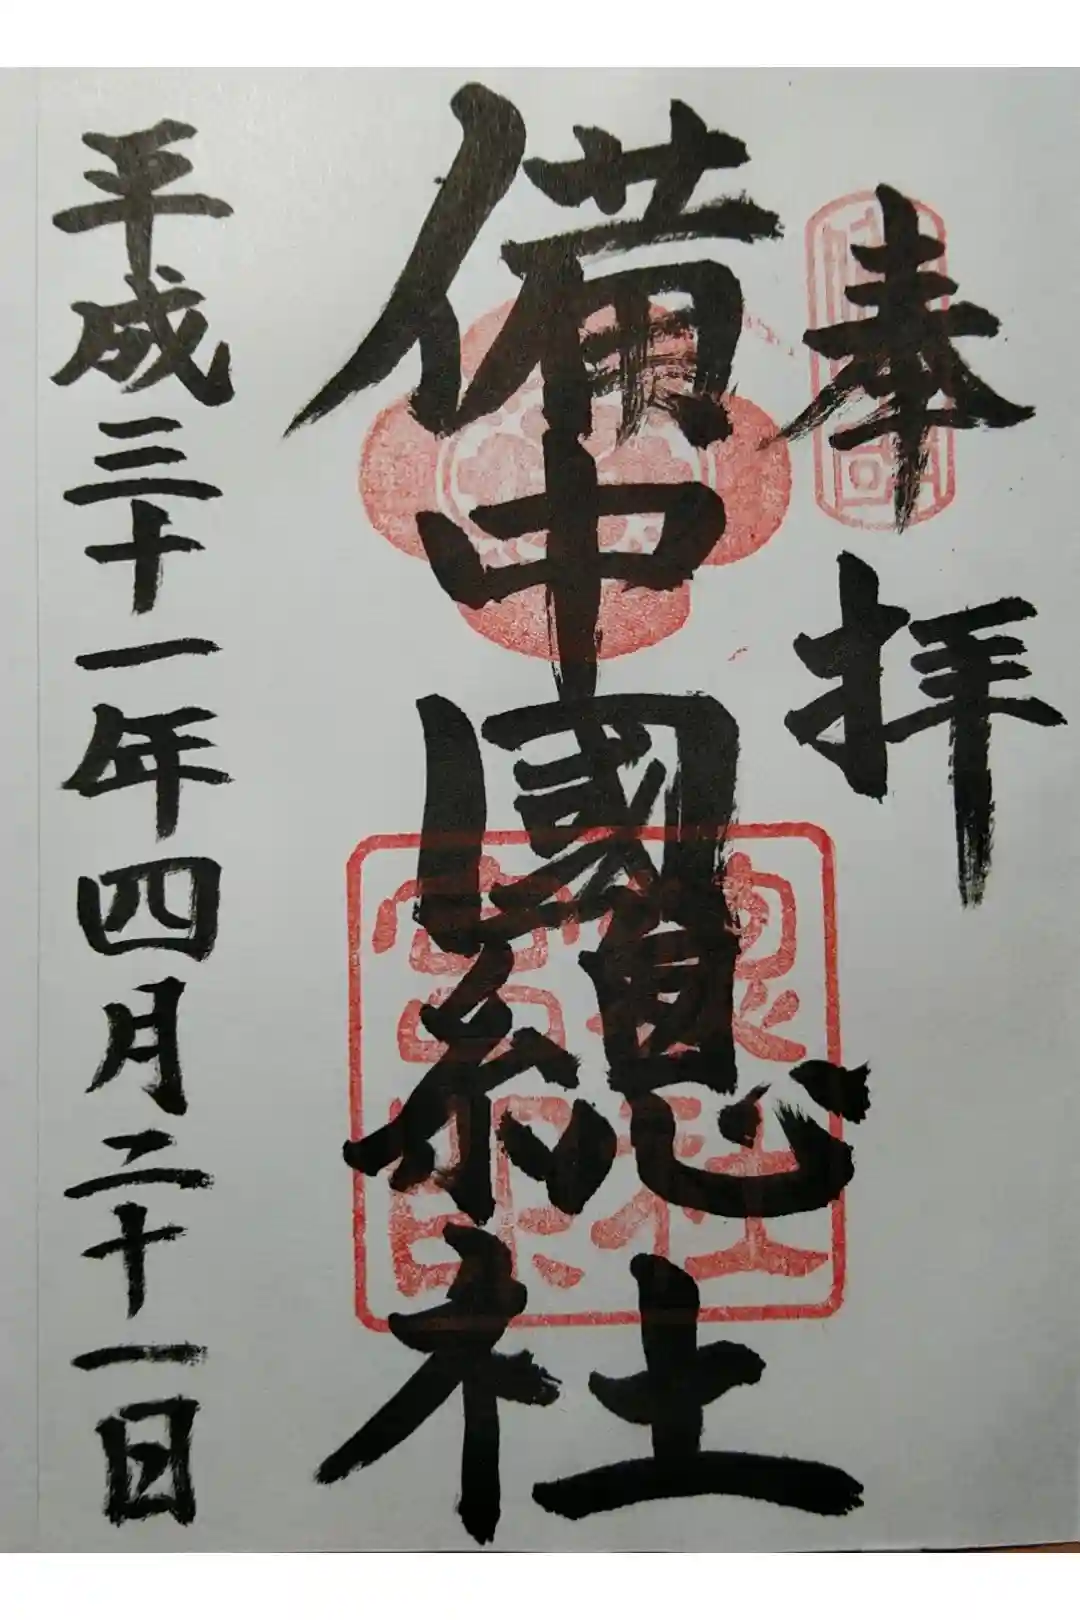 奉拝
備中國總社
平成三十一年四月二十一日
總社宮印